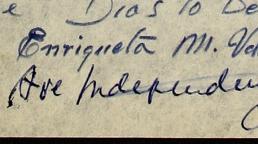 e Dios lo Be
Enriqueta M. Va
Ave Independen